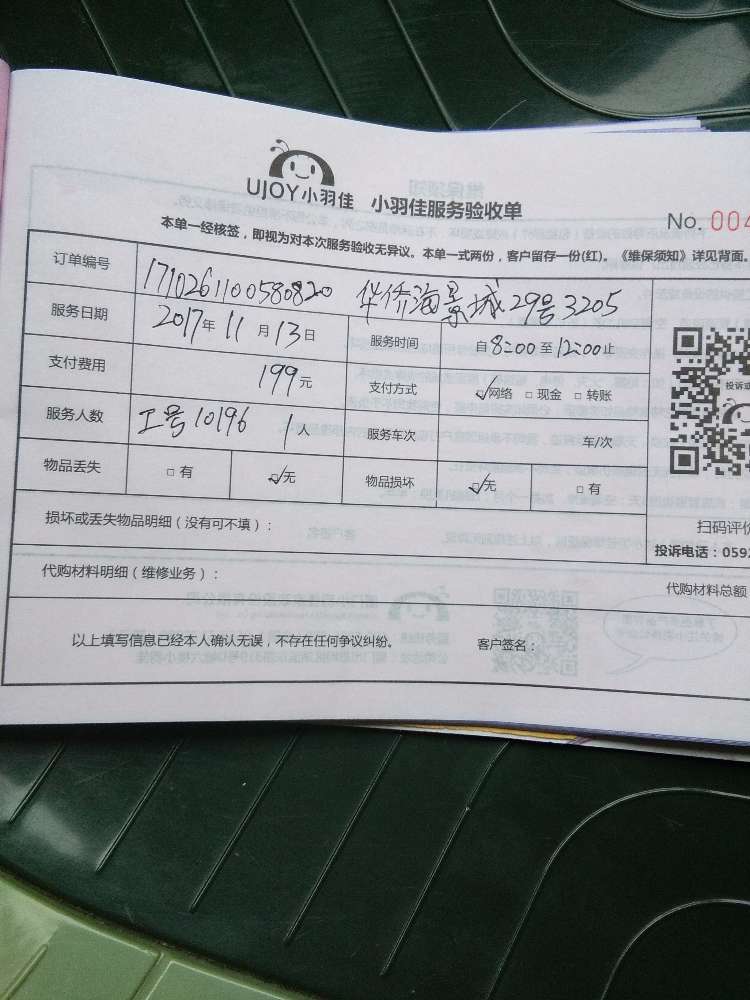 UJOY小羽佳 小羽佳服务验收单
No. 004
本单一经核签，即视为对本次服务验收无异议。本单一式两份，客户留存一份(红)。《维保须知》详见背面。
订单编号 1710261100580820 华侨海景城29号3205
服务日期 2017年11月13日 服务时间 自8:00至12:00止
支付费用 199元 支付方式 ☑网络 □现金 □转账
服务人数 工号10196 1人 服务车次 车/次
物品丢失 □有 ☑无 物品损坏 ☑无 □有
损坏或丢失物品明细（没有可不填）：
扫码评价
投诉电话：0592
代购材料明细（维修业务）：
代购材料总额
以上填写信息已经本人确认无误，不存在任何争议纠纷。 客户签名：